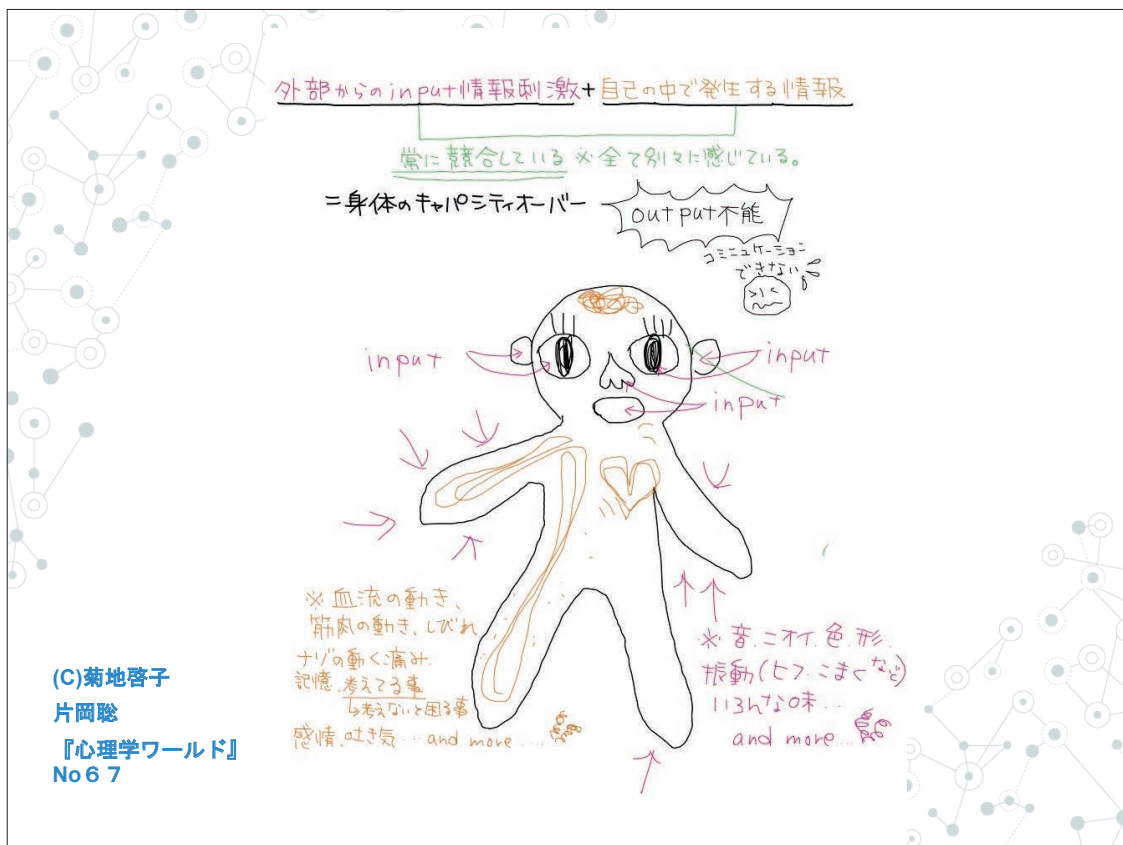 外部からのinput情報刺激+自己の中で発生する情報
常に競合している ※全て別々に感じている。
=身体のキャパシティオーバー
output不能
コミニュケーション
できない
input
input
input
※血流の動き、
筋肉の動き、しびれ
ナゾの動く痛み.
記憶.考えてる事
↳考えないと困る事
感情、吐き気…and more……
※音.ニオイ.色.形.
振動(ヒフ.こまくなど)
いろんな味…
and more…
(C)菊地啓子
片岡聡
『心理学ワールド』
No67